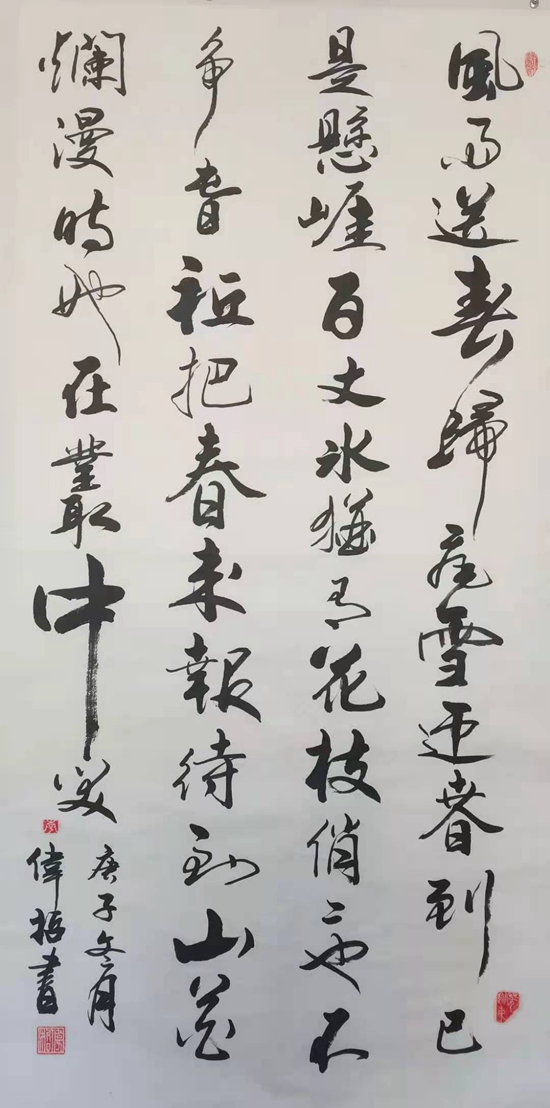 風雨送春歸飛雪迎春到已
是懸崖百丈冰猶有花枝俏〻也不
爭春祇把春來報待到山花
爛漫時她在叢中笑
庚子冬月
偉書